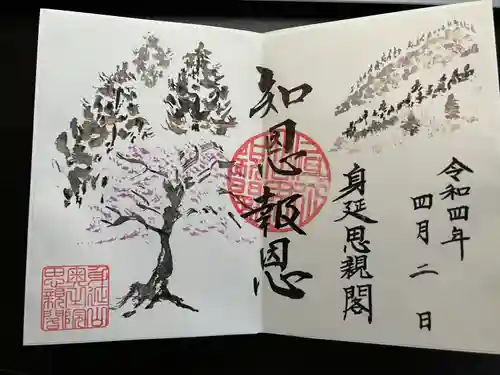 令和四年
四月二日
知恩報恩
身延思親閣
身延山
奥之院
思親閣